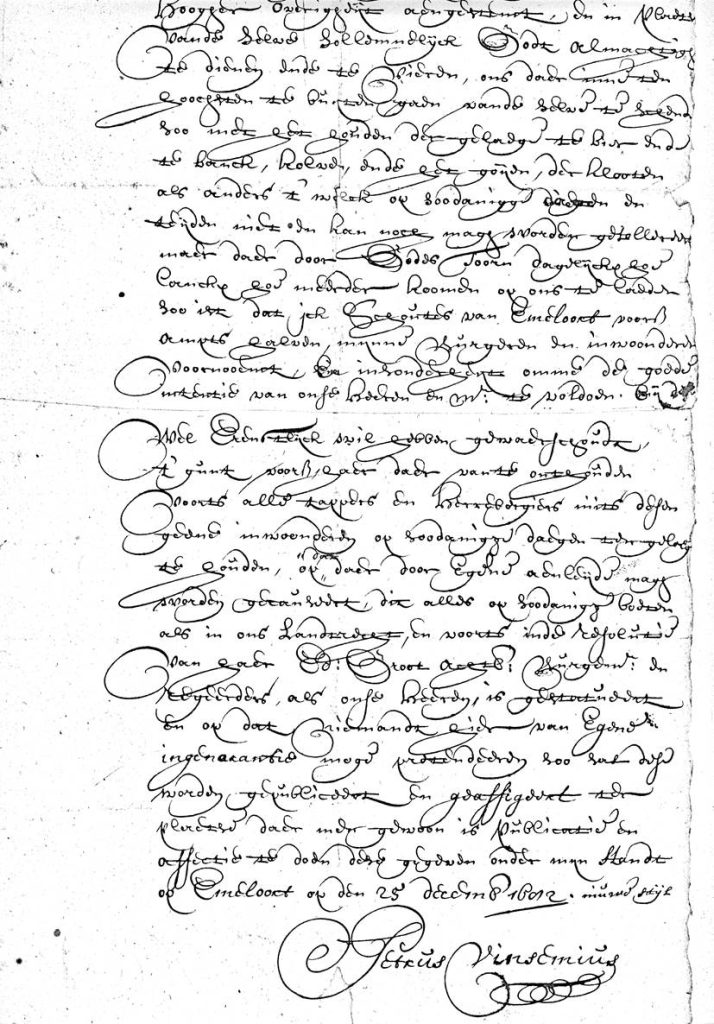 Hoogher Overigheyt aengestelt, en in plaets
vande selve sollemnelyck Godt almachtigh
te dienen ende te vieren, ons daer inne ten
hoochsten te buyten gaen vande selve te
soo met het houden der gelaege te bier ende
te banck, kolven, ende het goyen, der klooten
als anders t' welck op soodanige daegen en
tyden niet en kan noch magh worden getollereert
maer daer door Godes Toorn dagelyckx hoe
lanckx hoe meerder koomen op ons te laeden
soo ist dat ick Schoutes van Emeloort voorß
ampts halven, mynne Burgeren en inwoonderen
Voornoemt, En insonderheyt omme de goede
intentie van onse Heeren en Mrs te voldoen. By d
Wel Ernstlyck wil hebben gewaerschoudt,
t' gunt voorß haer daer van te onthouden
Voorts alle tappers en Herebergiers mits desen
geene inwoonderen op soodanige daegen ter gelaeg
te houden, op dat daer door Egene aenleyde magh
worden gecauseert, dit alles op soodanige boeten
als in ons Landtrecht, en voorts inde resolutie
Van haer Ed: Groot Achtb: Burgemrs en
Regeerders, als onse Heeren, is gestatueert
En op dat Niemandt hier van Egene
ingenorantie moge pretenderen soo sal dese
worden gepubliceert en geaffigeert ter
plaetse daer men gewoon is Publicatie en
affectie te doen dese gegeven onder myn handt
op Emeloort op den 25 decemb 1692. nuwe styl
Petrus Vinsemius